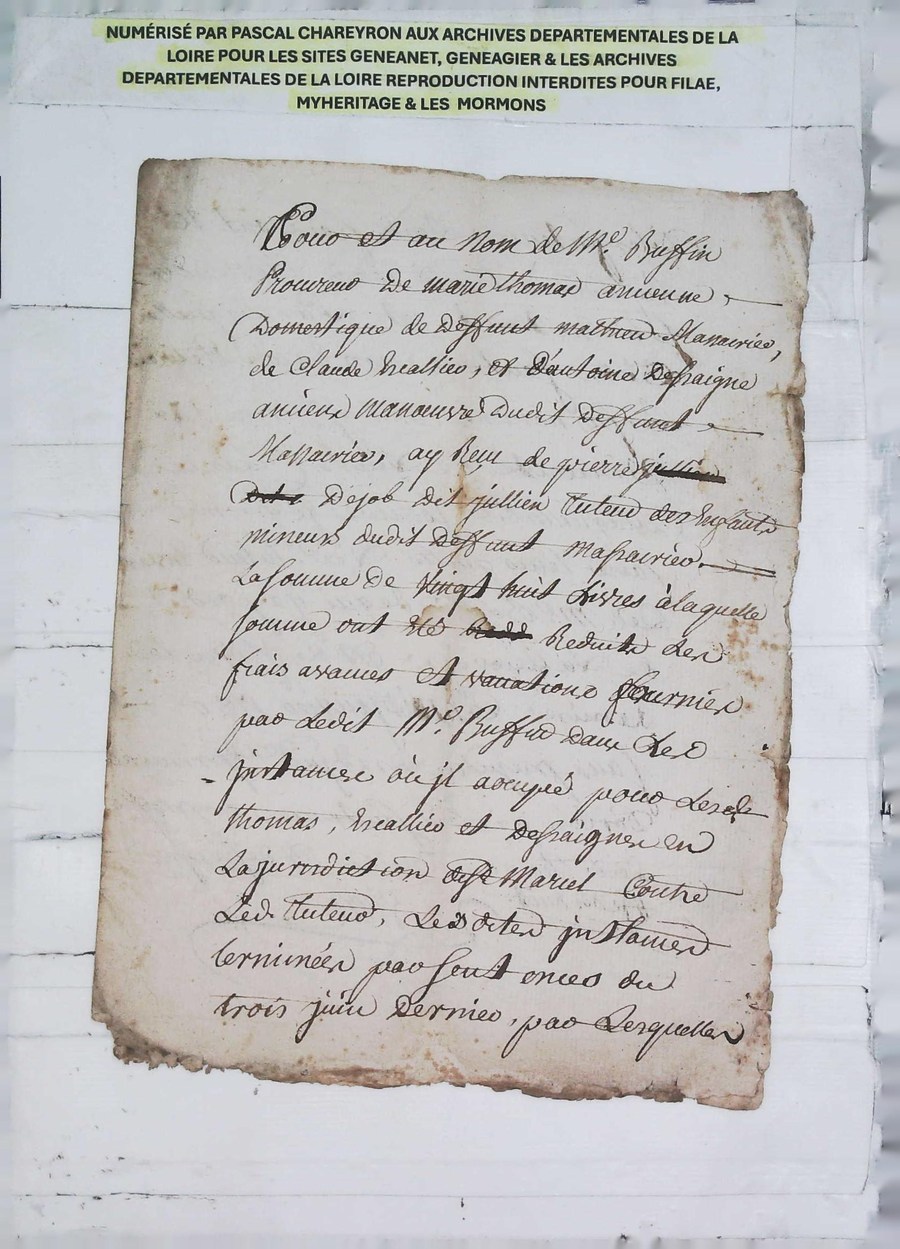 NUMÉRISÉ PAR PASCAL CHAREYRON AUX ARCHIVES DEPARTEMENTALES DE LA
LOIRE POUR LES SITES GENEANET, GENEAGIER & LES ARCHIVES
DEPARTEMENTALES DE LA LOIRE REPRODUCTION INTERDITES POUR FILAE,
MYHERITAGE & LES MORMONS
Pour et au nom de Me. Buffin
Procureur de marie thomas ancienne
Domestique de deffunt mathieu Massairier,
de Claude hcallier, et d'antoine Dessaigne
ancien manoeuvre dudit deffunt
Massairier, ay Reçu de pierre jullien
Dit Dejob dit jullien tuteur des Enfants
mineurs dudit deffunt Massairier.
La somme de vingt huit Livres à laquelle
somme ont été Reduits Les
frais avances et vacations fournies
par Ledit Me. Buffin dans Les
instances où il a occupé pour Lesd.
thomas, hcallier et dessaignes en
La jurisdiction de Marcl Contre
Led. tuteur, Lesdites instances
terminées par sentences du
trois juin dernier, par Lesquelles